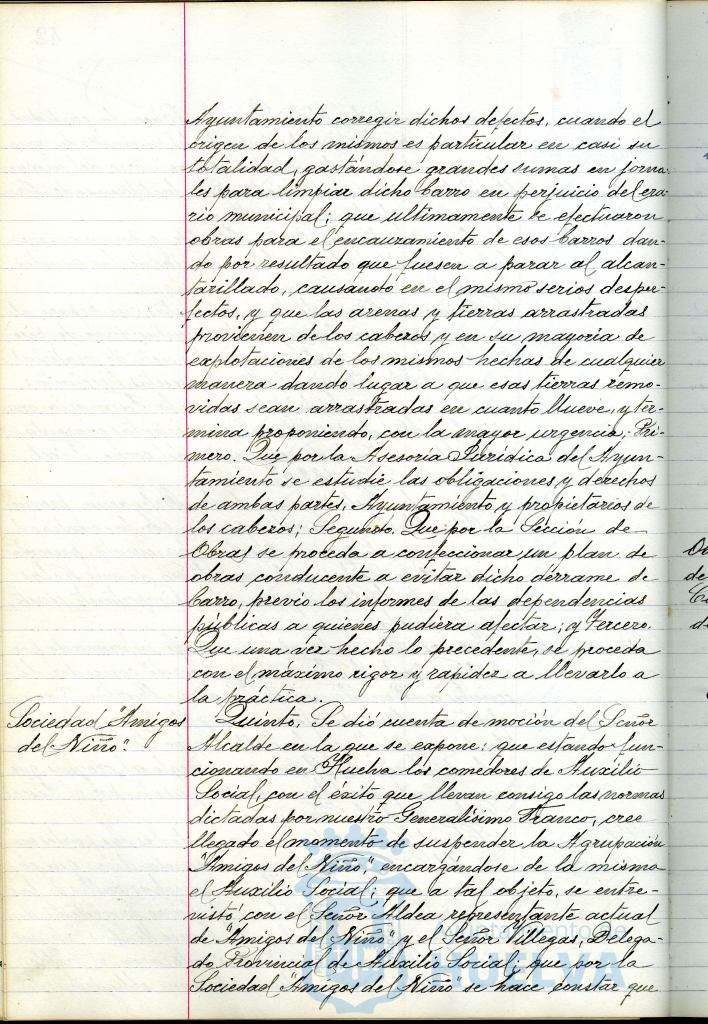 Ayuntamiento corregir dichos defectos, cuando el
origen de los mismos es particular en casi su
totalidad, gastándose grandes sumas en jorna-
les para limpiar dicho barro en perjuicio del era-
rio municipal; que ultimamente se efectuaron
obras para el encauzamiento de esos barros dan-
do por resultado que fuesen a parar al alcan-
tarillado, causando en el mismo serios desper-
fectos, y que las arenas y tierras arrastradas
provienen de los cabezos y en su mayoría de
explotaciones de los mismos hechas de cualquier
manera dando lugar a que esas tierras remo-
vidas sean arrastradas en cuanto llueve, y ter-
mina proponiendo, con la mayor urgencia; Pri-
mero. Que por la Asesoría Jurídica del Ayun-
tamiento se estudie las obligaciones y derechos
de ambas partes, Ayuntamiento y propietarios de
los cabezos; Segundo. Que por la Sección de
Obras se proceda a confeccionar un plan de
obras conducente a evitar dicho derrame de
barro, previo los informes de las dependencias
públicas a quienes pudiera afectar; y Tercero.
Que una vez hecho lo precedente, se proceda
con el máximo rigor y rapidez a llevarlo a
la práctica.
Sociedad "Amigos
del Niño".
Quinto. Se dió cuenta de moción del Señor
Alcalde en la que se expone: que estando fun-
cionando en Huelva los comedores de Auxilio
Social, con el éxito que llevan consigo las normas
dictadas por nuestro Generalísimo Franco, cree
llegado el momento de suspender la Agrupación
"Amigos del Niño", encargándose de la misma
el Auxilio Social; que a tal objeto, se entre-
vistó con el Señor Aldea representante actual
de "Amigos del Niño" y el Señor Villegas, Delega-
do Provincial de Auxilio Social; que por la
Sociedad "Amigos del Niño" se hace constar que
Ayuntamiento de
HUELVA